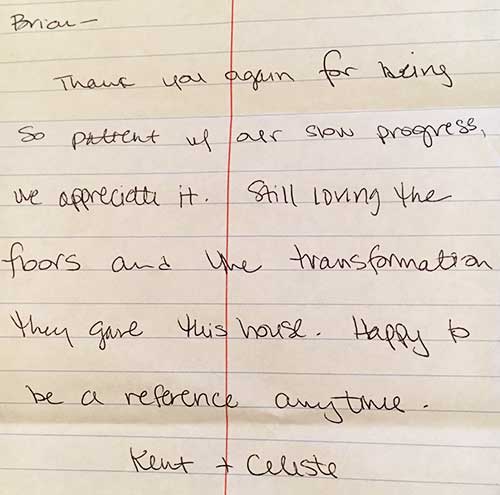 Brian—
Thank you again for being
so patient w/ our slow progress,
we appreciate it. Still loving the
floors and the transformation
they gave this house. Happy to
be a reference anytime.
Kent + Celiste